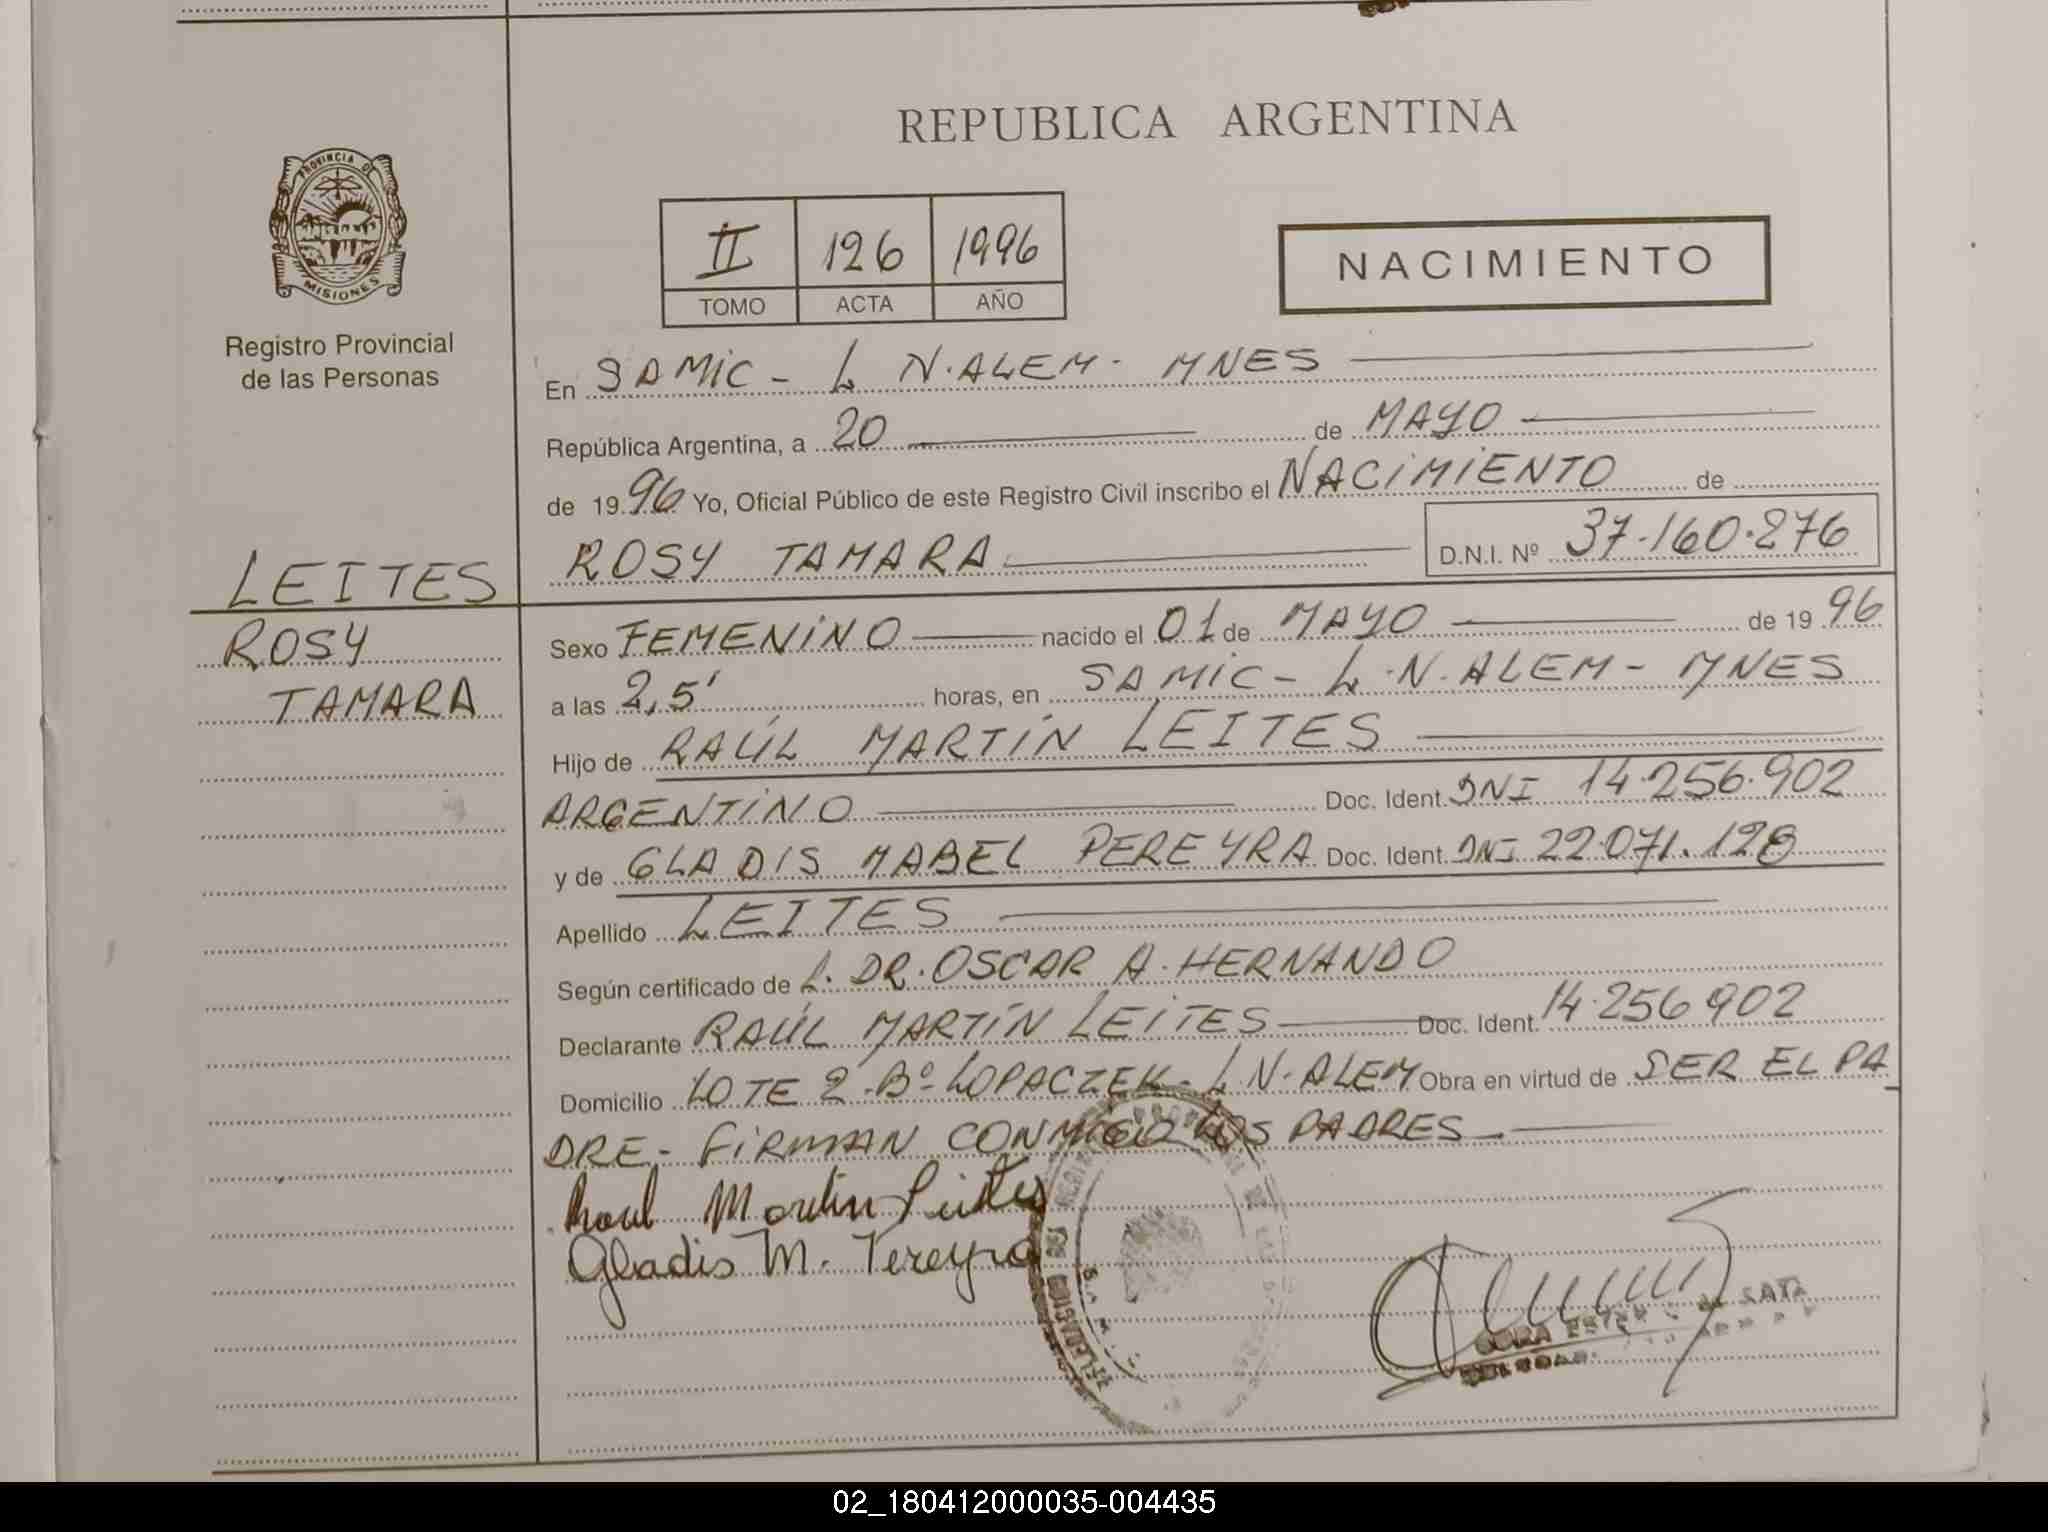 REPUBLICA ARGENTINA
PROVINCIA DE
MISIONES
Registro Provincial
de las Personas
II 126 1996
TOMO ACTA AÑO
NACIMIENTO
En SAMIC - L N. ALEM - MNES
República Argentina, a 20 de MAYO
de 1996 Yo, Oficial Público de este Registro Civil inscribo el NACIMIENTO de
ROSY TAMARA D.N.I. Nº 37.160.276
LEITES
ROSY
TAMARA
Sexo FEMENINO nacido el 01 de MAYO de 1996
a las 2,5' horas, en SAMIC - L.N. ALEM - MNES
Hijo de RAÚL MARTÍN LEITES
ARGENTINO Doc. Ident. DNI 14.256.902
y de GLADIS MABEL PEREYRA Doc. Ident. DNI 22.071.128
Apellido LEITES
Según certificado de L. DR. OSCAR A. HERNANDO
Declarante RAÚL MARTÍN LEITES Doc. Ident. 14.256902
Domicilio LOTE 2 - Bº LOPACZEK - L N. ALEM Obra en virtud de SER EL PA_
DRE - FIRMAN CONMIGO LOS PADRES
Raul Martin Leites
Gladis M. Pereyra
02_180412000035-004435